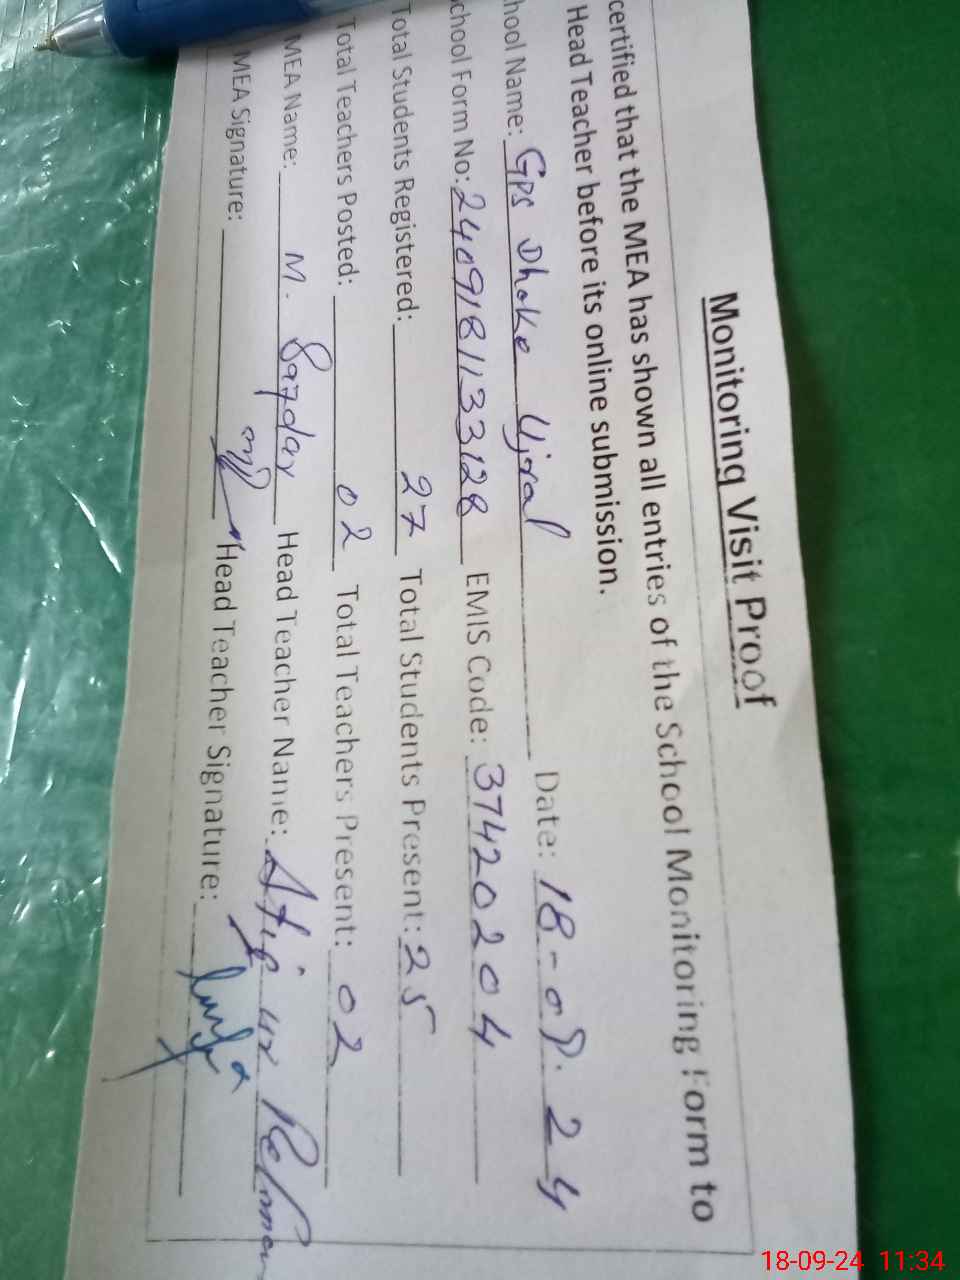 Monitoring Visit Proof
certified that the MEA has shown all entries of the School Monitoring Form to
Head Teacher before its online submission.
hool Name: GPS Dhoke Ujral Date: 18-09.24
chool Form No: 2409181133128 EMIS Code: 37420204
Total Students Registered: 27 Total Students Present: 25
Total Teachers Posted: 02 Total Teachers Present: 02
MEA Name: M. Safdar Head Teacher Name: Atiq ur Rehman
MEA Signature: Head Teacher Signature:
18-09-24 11:34